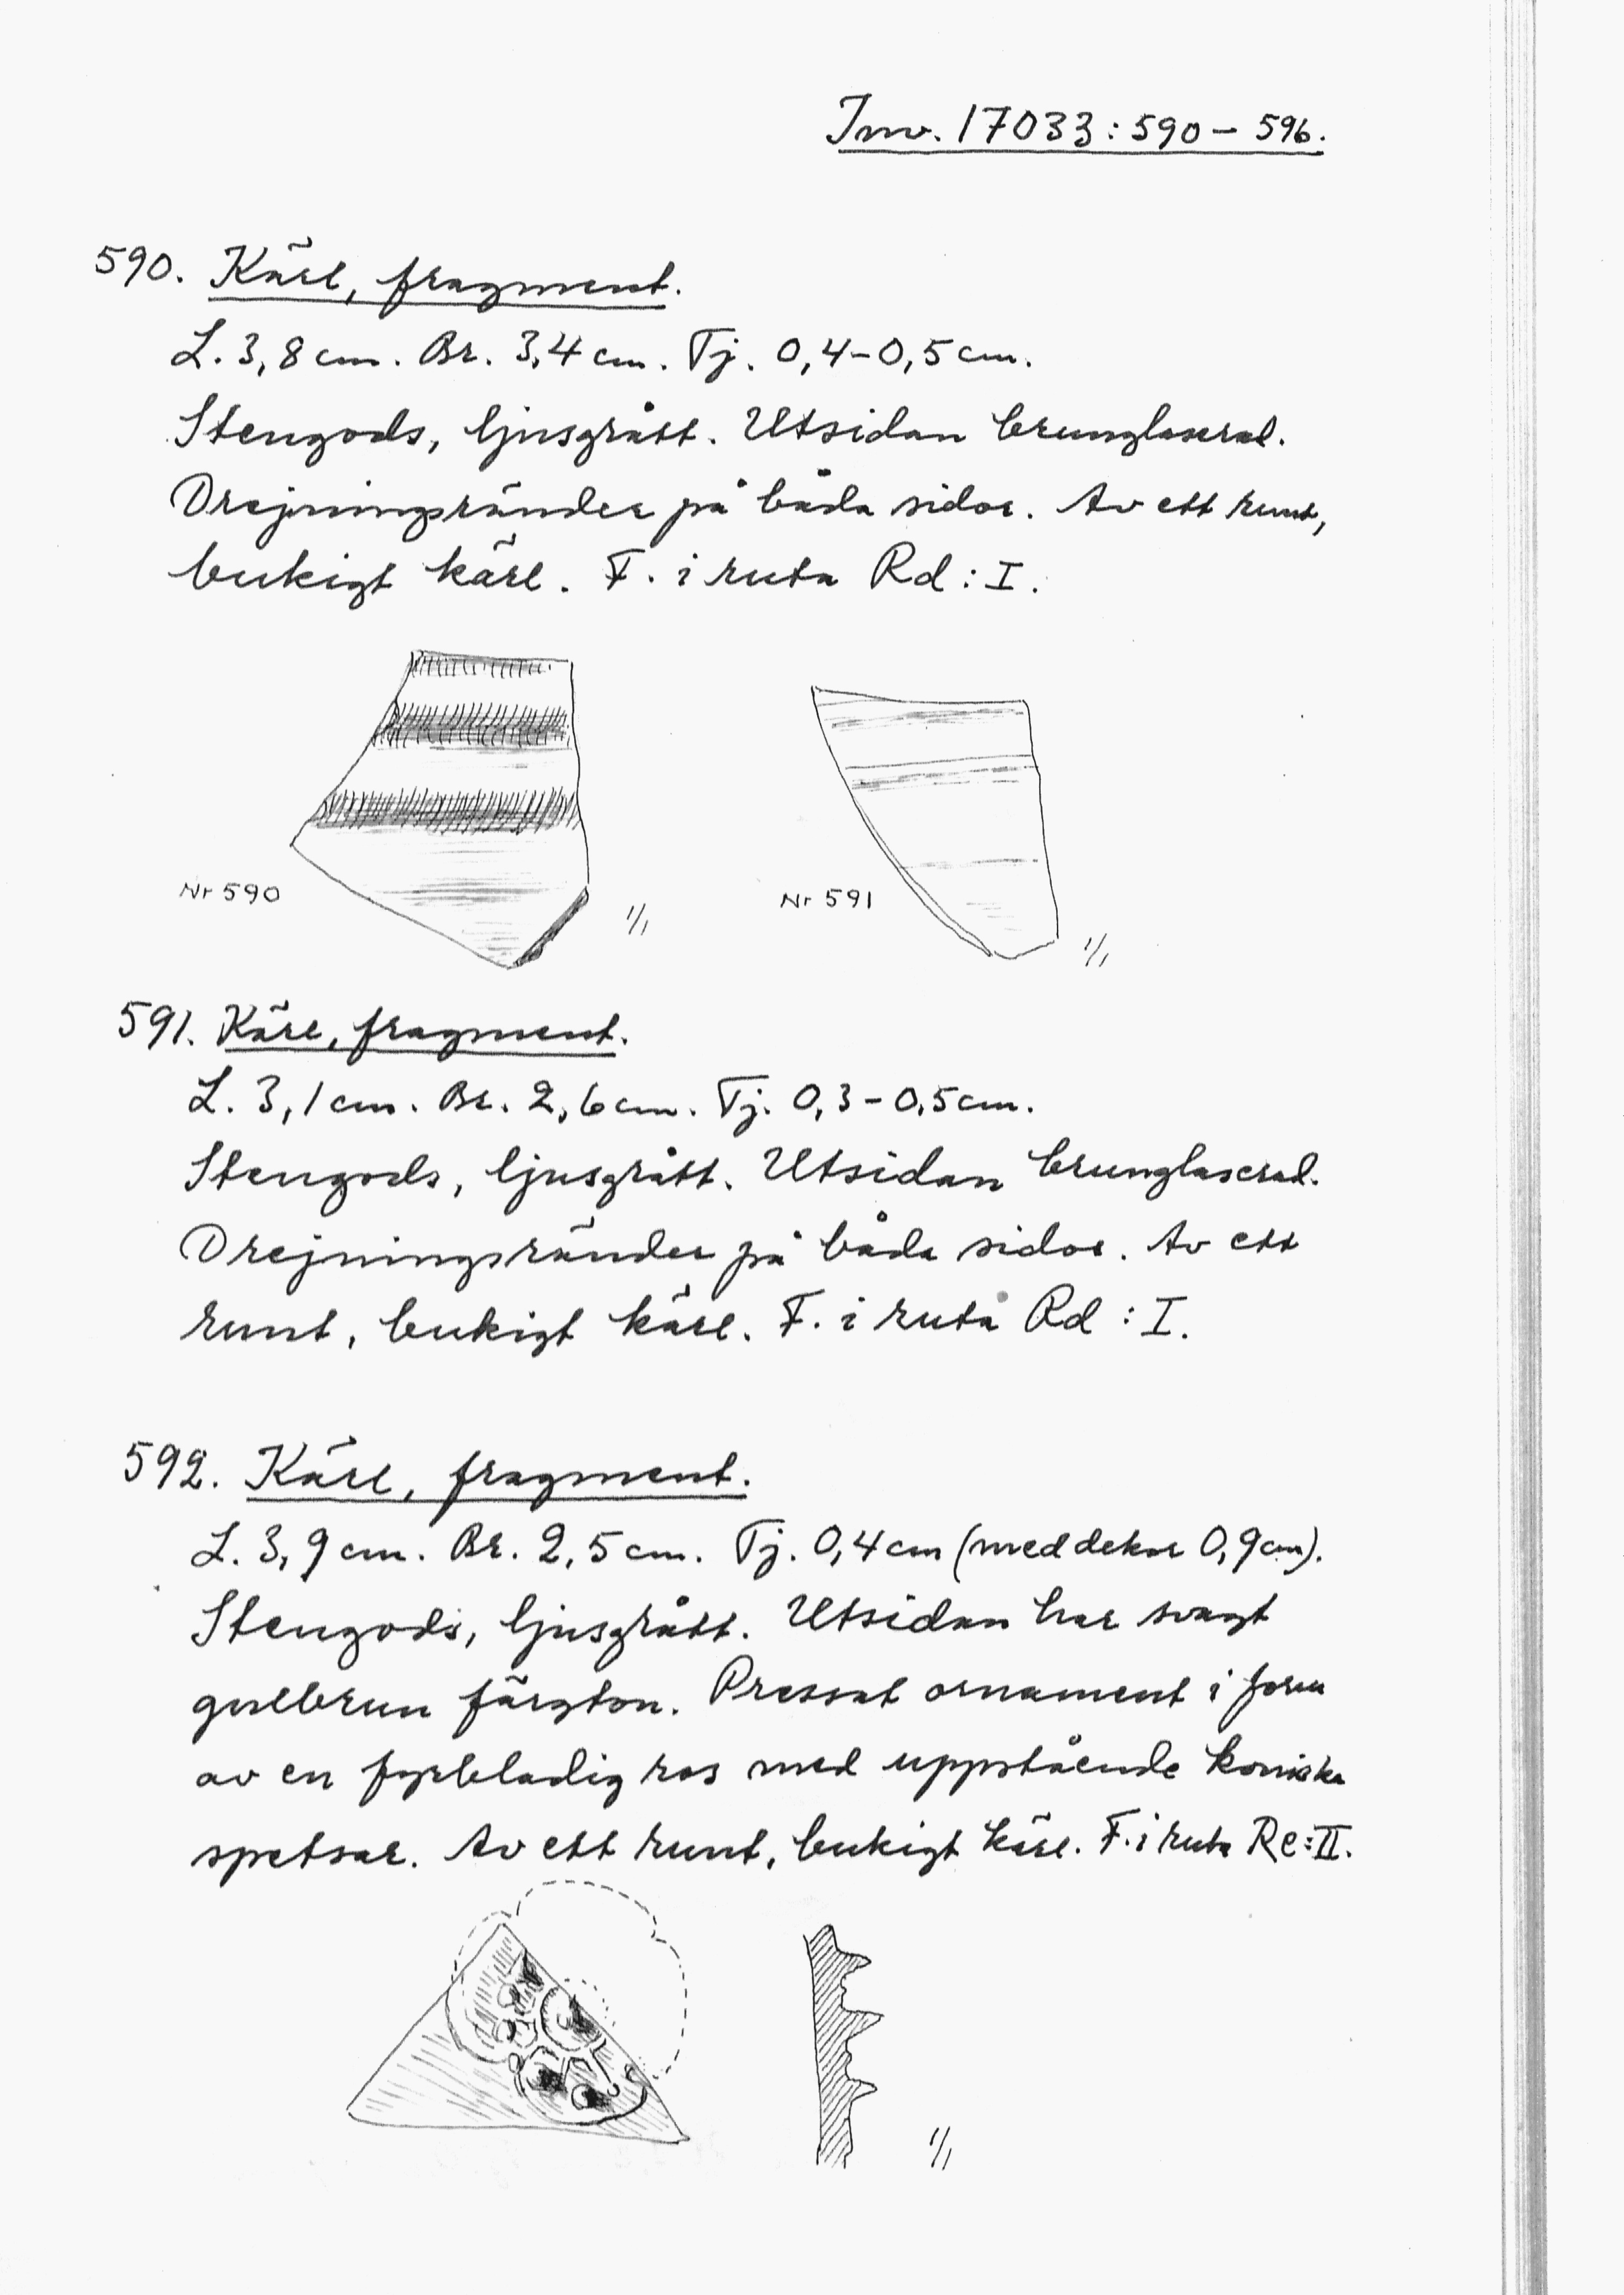 Inv. 17033:590 – 596.
590. Kärl, fragment.
L. 3,8 cm. Br. 3,4 cm. Tj. 0,4–0,5 cm.
Stengods, ljusgrått. Utsidan brunglaserad.
Drejningsränder på båda sidor. Av ett runt,
bukigt kärl. F. i ruta Rd : I.
Nr 590
1/1
Nr 591
1/1
591. Kärl, fragment.
L. 3,1 cm. Br. 2,6 cm. Tj. 0,3–0,5 cm.
Stengods, ljusgrått. Utsidan brunglaserad.
Drejningsränder på båda sidor. Av ett
runt, bukigt kärl. F. i ruta Rd : I.
592. Kärl, fragment.
L. 3,9 cm. Br. 2,5 cm. Tj. 0,4 cm (med dekor 0,9 cm).
Stengods, ljusgrått. Utsidan har svagt
gulbrun färgton. Pressat ornament i form
av en fyrbladig ros med uppstående koniska
spetsar. Av ett runt, bukigt kärl. F. i ruta Re:II.
1/1